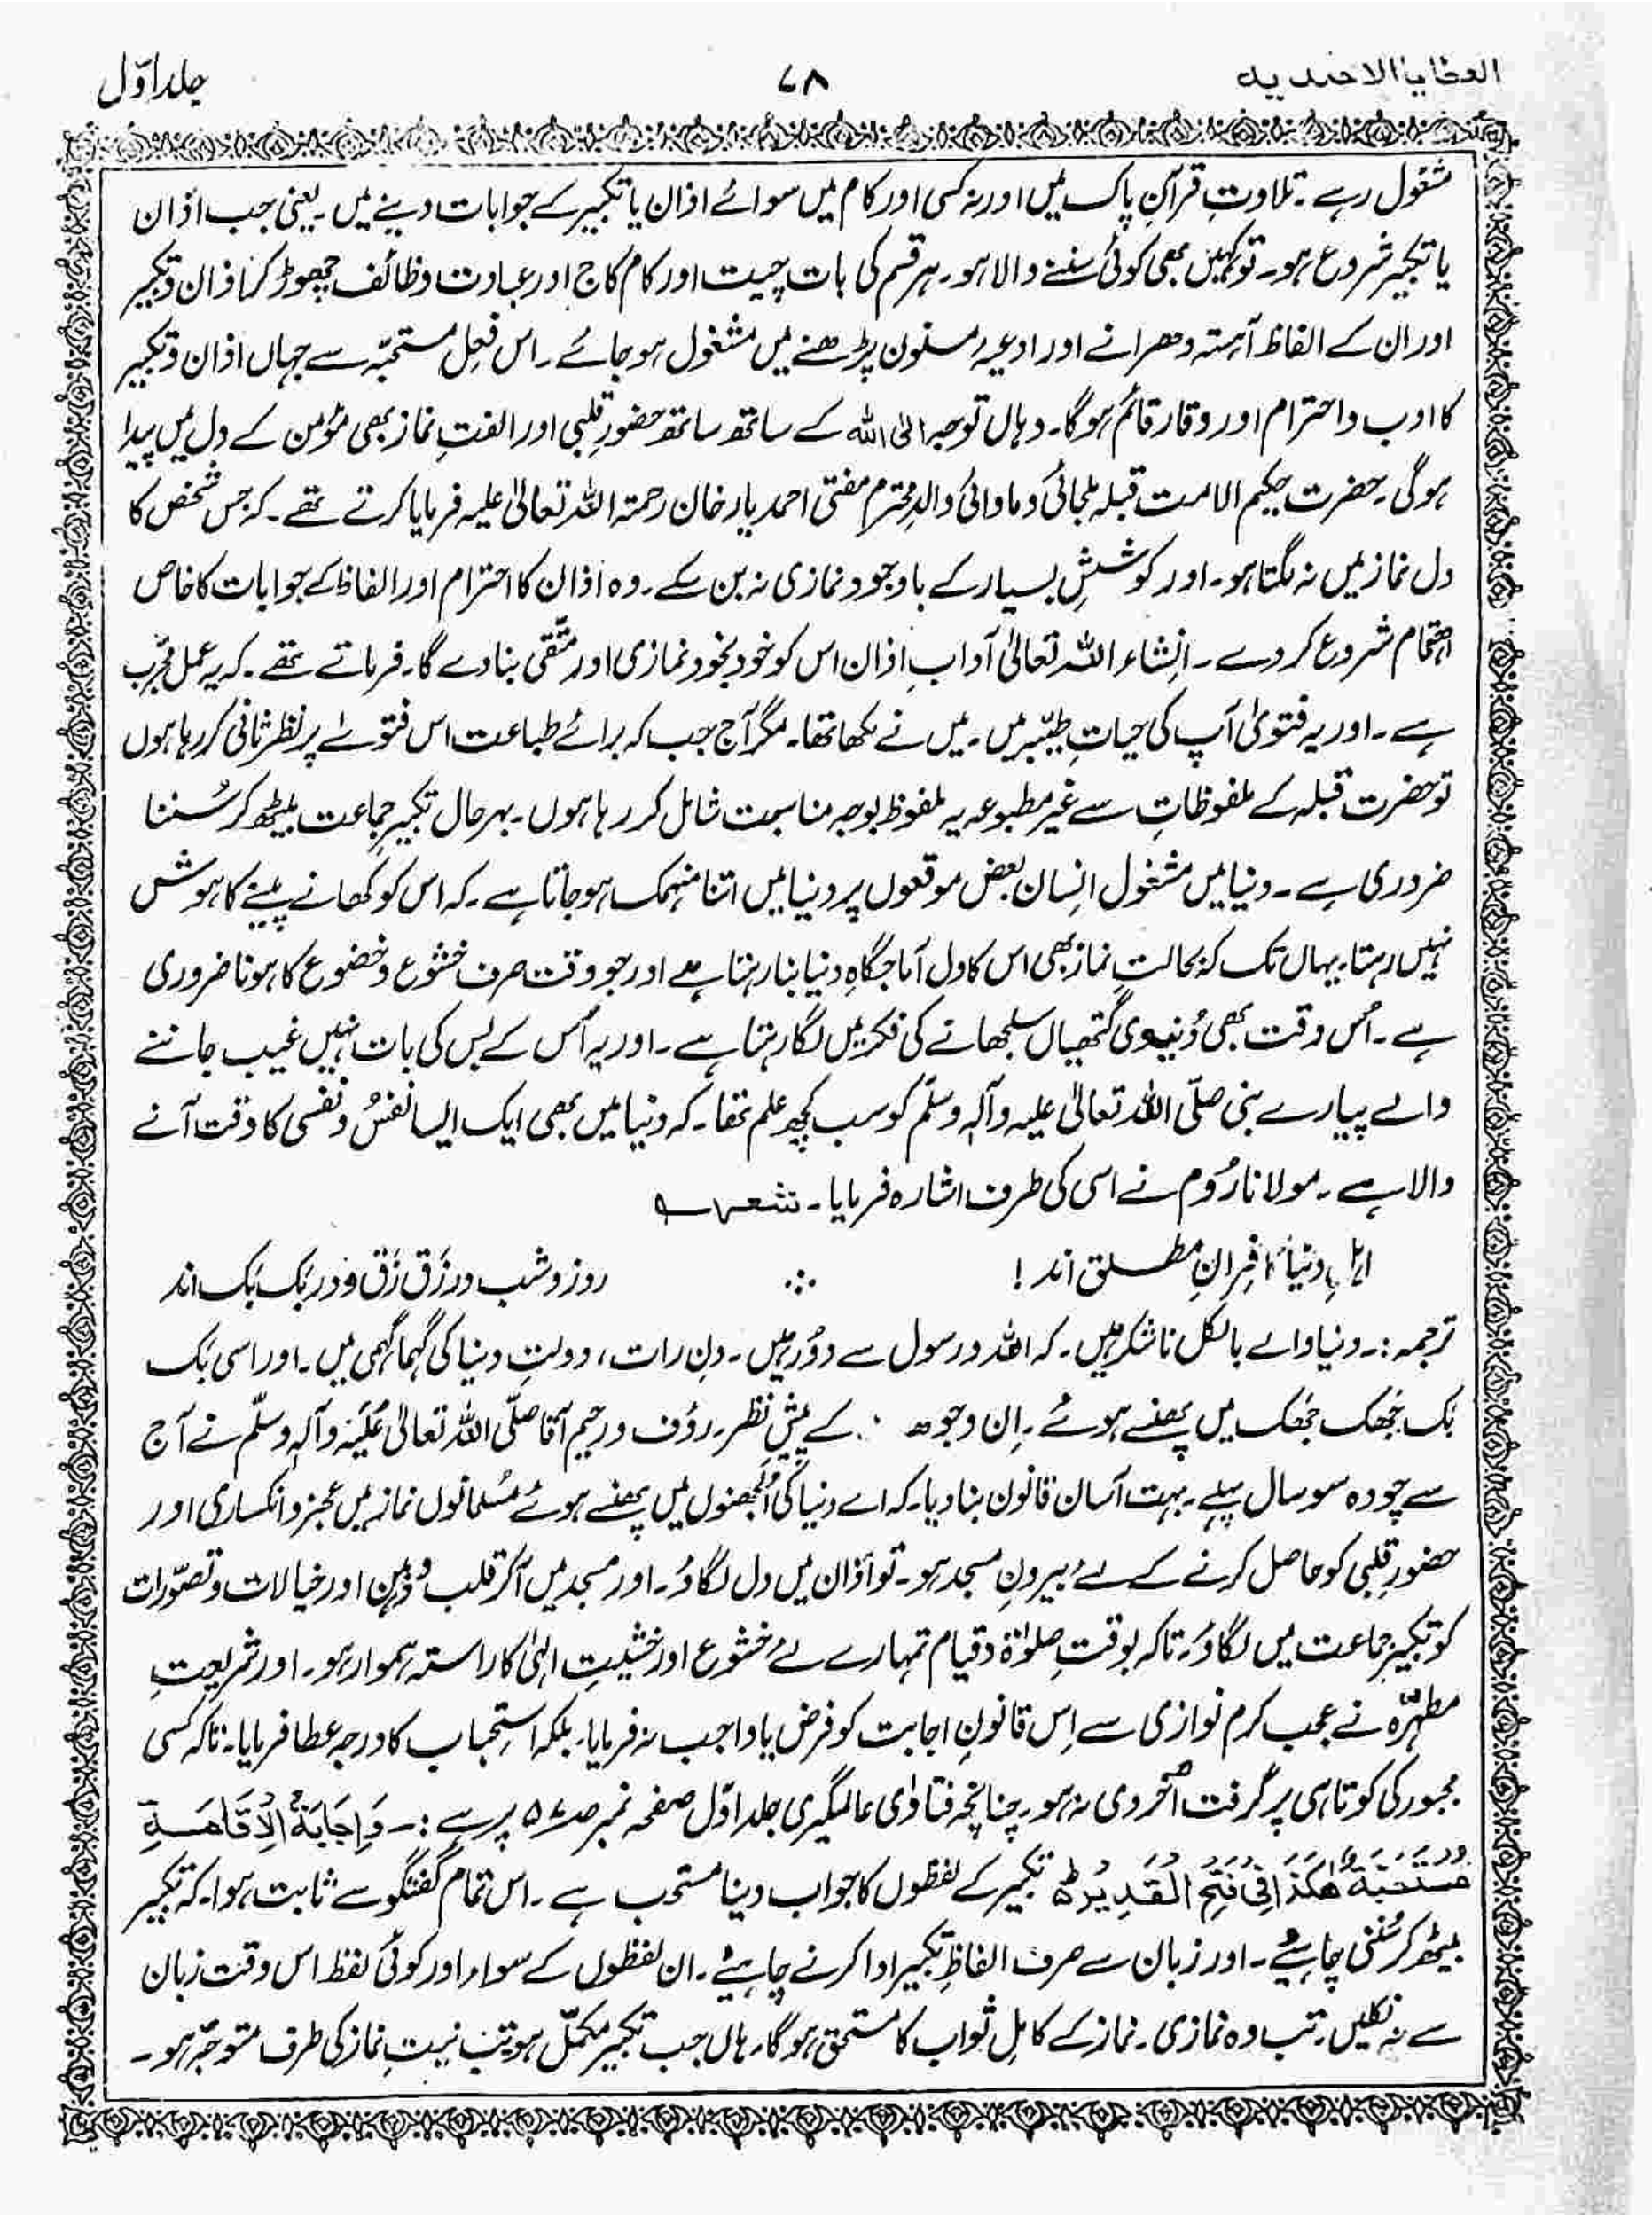 العطایا الاحمدیہ
۷۸
جلد اوّل
مشغول رہے۔ تلاوتِ قرآنِ پاک میں اور نہ کسی اور کام میں سوائے اذان یا تکبیر کے جوابات دینے میں۔ یعنی جب اذان
یا تکبیر شروع ہو۔ تو کہیں بھی کوئی سننے والا ہو۔ ہر قسم کی بات چیت اور کام کاج اور عبادت وظائف چھوڑ کر اذان و تکبیر
اور ان کے الفاظ آہستہ دھرانے اور ادعیہ مسنون پڑھنے میں مشغول ہو جائے۔ اس فعلِ مستحبّہ سے جہاں اذان و تکبیر
کا ادب و احترام اور وقار قائم ہو گا۔ وہاں توجہ الی اللہ کے ساتھ ساتھ حضورِ قلبی اور الفتِ نماز بھی مؤمن کے دل میں پیدا
ہوگی۔ حضرت حکیم الامت قبلہ ملجائی و ماوائی والدِ محترم مفتی احمد یار خان رحمتہ اللہ تعالیٰ علیہ فرمایا کرتے تھے۔ کہ جس شخص کا
دل نماز میں نہ لگتا ہو۔ اور کوششِ بسیار کے باوجود نمازی نہ بن سکے۔ وہ اذان کا احترام اور الفاظ کے جوابات کا خاص
اھتمام شروع کر دے۔ انشاء اللہ تعالیٰ آدابِ اذان اس کو خود بخود نمازی اور متّقی بنا دے گا۔ فرماتے تھے۔ کہ یہ عمل مجرّب
ہے۔ اور یہ فتویٰ آپ کی حیاتِ طیّبہ میں۔ میں نے لکھا تھا۔ مگر آج جب کہ برائے طباعت اس فتوے پر نظر ثانی کر رہا ہوں
تو حضرت قبلہ کے ملفوظات سے غیر مطبوعہ یہ ملفوظ بوجہ مناسبت شامل کر رہا ہوں۔ بہر حال تکبیرِ جماعت بیٹھ کر سُننا
ضروری ہے۔ دنیا میں مشغول انسان بعض موقعوں پر دنیا میں اتنا منہمک ہو جاتا ہے۔ کہ اس کو کھانے پینے کا ہوش
نہیں رہتا۔ یہاں تک کہ بحالتِ نماز بھی اس کا دل آماجگاہِ دنیا بنا رہتا ہے اور جو وقت صرف خشوع و خضوع کا ہونا ضروری
ہے۔ اُس وقت بھی دُنیوی گتھیاں سلجھانے کی فکر میں لگا رہتا ہے۔ اور یہ اُس کے بس کی بات نہیں غیب جاننے
والے پیارے نبی صلّی اللہ تعالیٰ علیہ وآلہٖ وسلّم کو سب کچھ علم تھا۔ کہ دنیا میں بھی ایک ایسا نفسُ و نفسی کا وقت آنے
والا ہے۔ مولانا رُوم نے اسی کی طرف اشارہ فرمایا۔ شعر
اہلِ دنیا کافِرانِ مطلق اند ! ∴ روز و شب در زَق زَق و در بَک بَک اند
ترجمہ:۔ دنیا والے بالکل ناشکر ہیں۔ کہ اللہ و رسول سے دُور ہیں۔ دن رات، دولتِ دنیا کی گہما گہمی میں۔ اور اسی بَک
بَک جھَک جھَک میں پھنسے ہوئے۔ اِن وجوھ کے پیشِ نظر۔ رؤف و رحیم آقا صلّی اللہ تعالیٰ عَلَیْہِ وآلہٖ وسلّم نے آج
سے چودہ سو سال پہلے۔ بہت آسان قانون بنا دیا۔ کہ اے دنیا کی اُلجھنوں میں پھنسے ہوئے مُسلمانوں نماز میں عجز و انکساری اور
حضورِ قلبی کو حاصل کرنے کے لئے بیرونِ مسجد ہو۔ تو آذان میں دل لگاؤ۔ اور مسجد میں آکر قلب و ذہن اور خیالات و تصوّرات
کو تکبیرِ جماعت میں لگاؤ۔ تاکہ بوقتِ صلوٰۃ و قیام تمہارے لئے خشوع اور خشیتِ الٰہی کا راستہ ہموار ہو۔ اور شریعتِ
مطہّرہ نے عجب کرم نوازی سے اِس قانونِ اجابت کو فرض یا واجب نہ فرمایا۔ بلکہ استحباب کا درجہ عطا فرمایا۔ تاکہ کسی
مجبور کی کوتاہی پر گرفت اُخروی نہ ہو۔ چنانچہ فتاوٰی عالمگیری جلد اوّل صفحہ نمبر ۵۷ پر ہے :۔ وَاِجَابَۃُ الْاِقَامَۃِ
مُسْتَحَبَّۃٌ ھٰکَذَا فِیْ فَتْحِ الْقَدِیْرِ ط تکبیر کے لفظوں کا جواب دینا مستحب ہے۔ اس تمام گفتگو سے ثابت ہوا۔ کہ تکبیر
بیٹھ کر سُننی چاہیئے۔ اور زبان سے صرف الفاظِ تکبیر ادا کرنے چاہیئے۔ ان لفظوں کے سواء اور کوئی لفظ اس وقت زبان
سے نہ نکلیں۔ تب وہ نمازی۔ نماز کے کامِل ثواب کا مستحق ہو گا۔ ہاں جب تکبیر مکمّل ہو تب نیتِ نماز کی طرف متوجّہ ہو۔